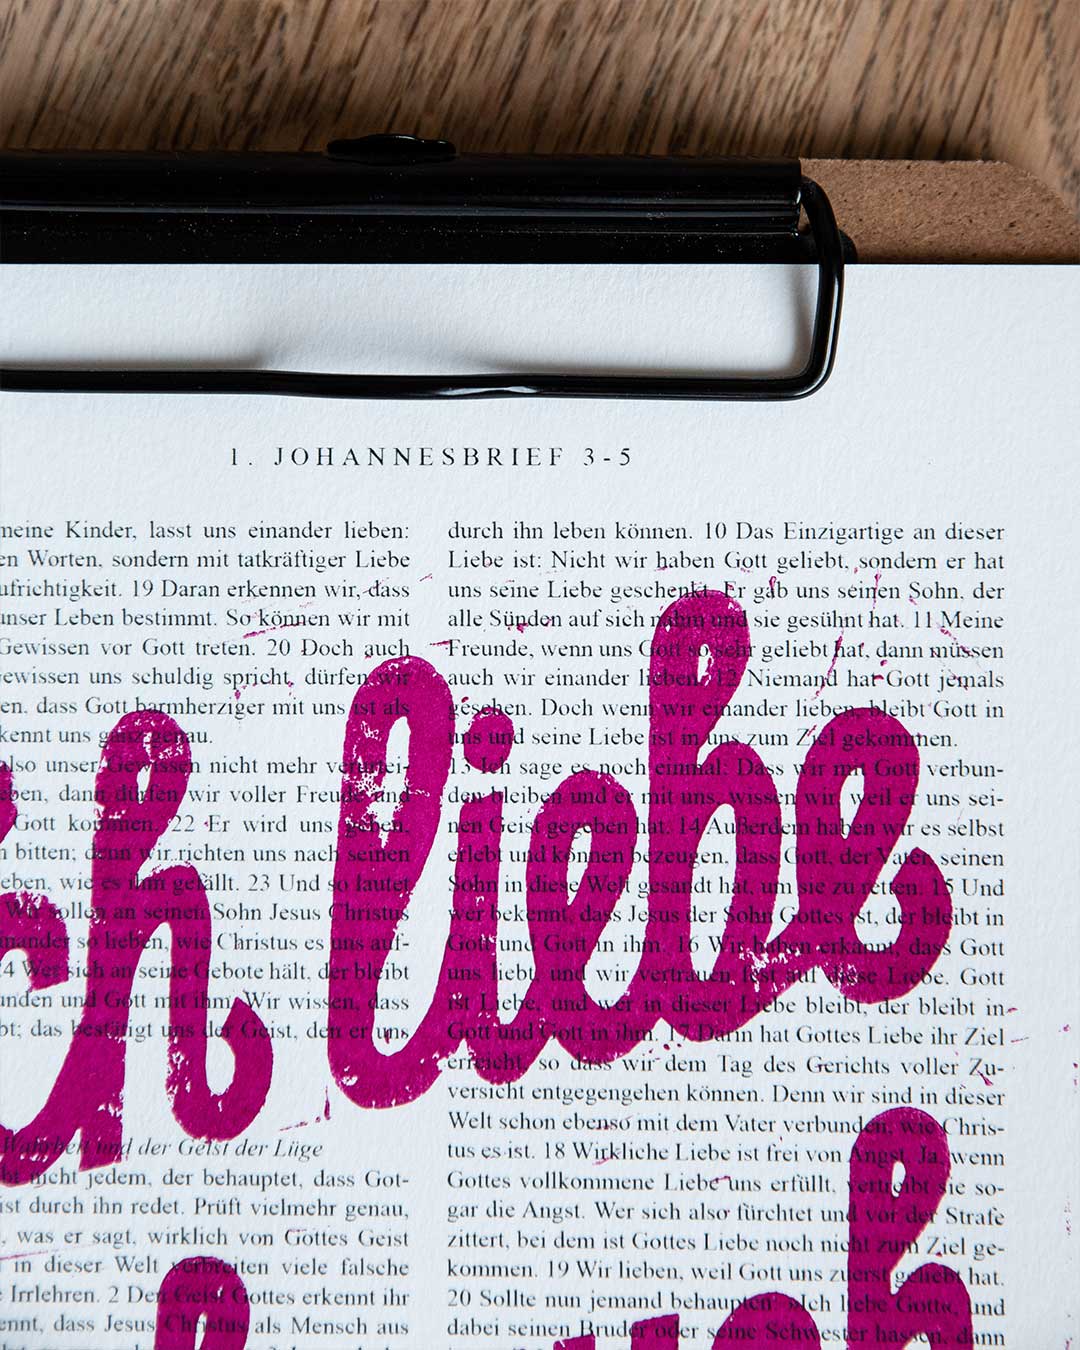 1. JOHANNESBRIEF 3-5
meine Kinder, lasst uns einander lieben:
en Worten, sondern mit tatkräftiger Liebe
ufrichtigkeit. 19 Daran erkennen wir, dass
unser Leben bestimmt. So können wir mit
Gewissen vor Gott treten. 20 Doch auch
ewissen uns schuldig spricht, dürfen wir
en, dass Gott barmherziger mit uns ist als
kennt uns ganz genau.
also unser Gewissen nicht mehr verurtei-
eben, dann dürfen wir voller Freude und
Gott kommen. 22 Er wird uns geben,
n bitten; denn wir richten uns nach seinen
eben, wie es ihm gefällt. 23 Und so lautet
Wir sollen an seinen Sohn Jesus Christus
inander so lieben, wie Christus es uns auf-
24 Wer sich an seine Gebote hält, der bleibt
unden und Gott mit ihm. Wir wissen, dass
bt; das bestätigt uns der Geist, den er uns
Wahrheit und der Geist der Lüge
bt nicht jedem, der behauptet, dass Got-
ist durch ihn redet. Prüft vielmehr genau,
, was er sagt, wirklich von Gottes Geist
in dieser Welt verbreiten viele falsche
Irrlehren. 2 Den Geist Gottes erkennt ihr
ennt, dass Jesus Christus als Mensch aus
durch ihn leben können. 10 Das Einzigartige an dieser
Liebe ist: Nicht wir haben Gott geliebt, sondern er hat
uns seine Liebe geschenkt. Er gab uns seinen Sohn, der
alle Sünden auf sich nahm und sie gesühnt hat. 11 Meine
Freunde, wenn uns Gott so sehr geliebt hat, dann müssen
auch wir einander lieben. 12 Niemand hat Gott jemals
gesehen. Doch wenn wir einander lieben, bleibt Gott in
uns und seine Liebe ist in uns zum Ziel gekommen.
13 Ich sage es noch einmal: Dass wir mit Gott verbun-
den bleiben und er mit uns, wissen wir, weil er uns sei-
nen Geist gegeben hat. 14 Außerdem haben wir es selbst
erlebt und können bezeugen, dass Gott, der Vater, seinen
Sohn in diese Welt gesandt hat, um sie zu retten. 15 Und
wer bekennt, dass Jesus der Sohn Gottes ist, der bleibt in
Gott und Gott in ihm. 16 Wir haben erkannt, dass Gott
uns liebt, und wir vertrauen fest auf diese Liebe. Gott
ist Liebe, und wer in dieser Liebe bleibt, der bleibt in
Gott und Gott in ihm. 17 Darin hat Gottes Liebe ihr Ziel
erreicht, so dass wir dem Tag des Gerichts voller Zu-
versicht entgegengehen können. Denn wir sind in dieser
Welt schon ebenso mit dem Vater verbunden, wie Chris-
tus es ist. 18 Wirkliche Liebe ist frei von Angst. Ja, wenn
Gottes vollkommene Liebe uns erfüllt, vertreibt sie so-
gar die Angst. Wer sich also fürchtet und vor der Strafe
zittert, bei dem ist Gottes Liebe noch nicht zum Ziel ge-
kommen. 19 Wir lieben, weil Gott uns zuerst geliebt hat.
20 Sollte nun jemand behaupten: »Ich liebe Gott«, und
dabei seinen Bruder oder seine Schwester hassen, dann
ch liebe